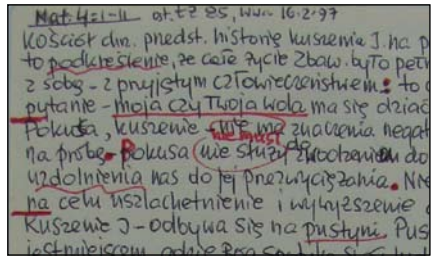 Mat. 4:1-11 art. tz 85, Wwa 16.2.97
Kościół chrz. przedst. historię kuszenia J. na p
to podkreślenie, że całe życie Zbaw. było peł
z sobą - z przyjętym człowieczeństwem: to
pytanie - moja czy Twoja wola ma się dziać
Pokusa, kuszenie - nie ma znaczenia negat
na próbę - Pokusa nie służy zwodzeniu do
uzdolnienia nas do jej przezwyciężania. Ni
na celu uszlachetnienie i wywyższenie
Kuszenie J - odbywa się na pustyni. Pus
jest miejscem, gdzie